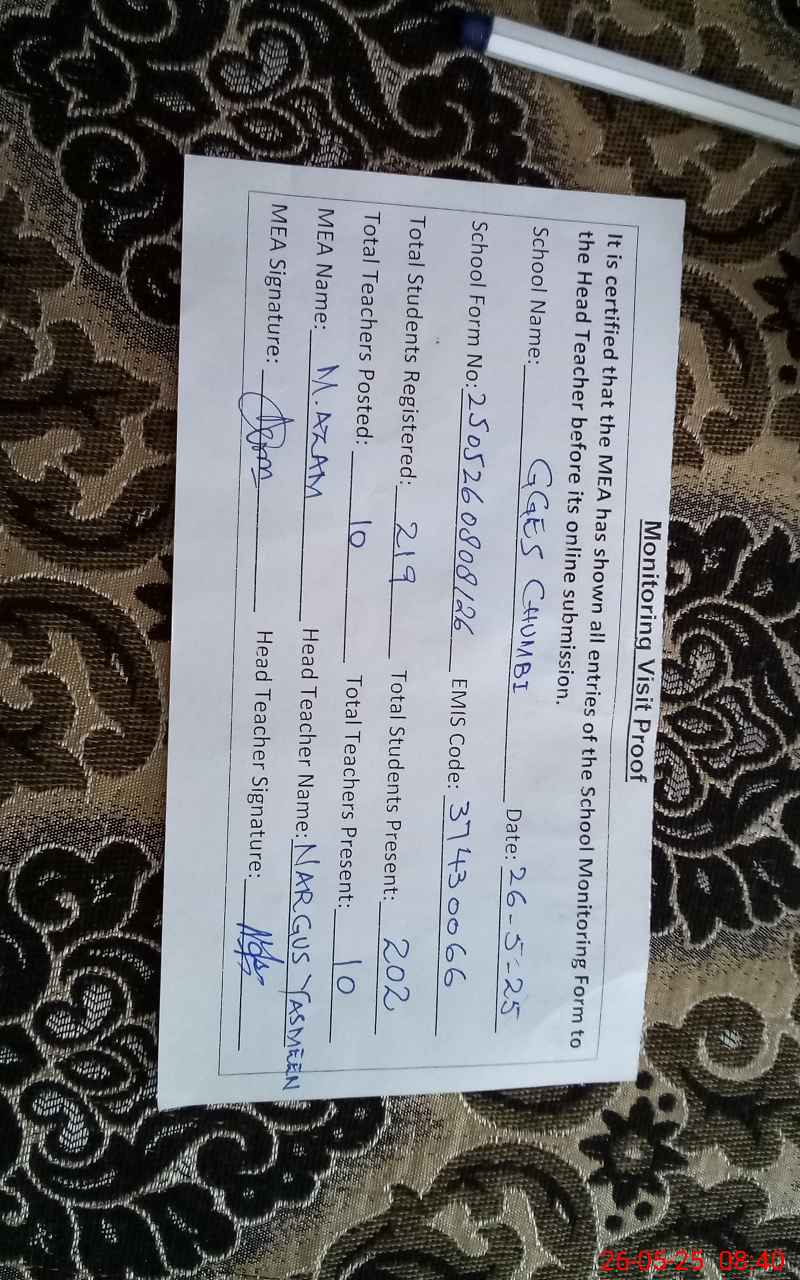 Monitoring Visit Proof
It is certified that the MEA has shown all entries of the School Monitoring Form to
the Head Teacher before its online submission.
School Name: GGES CHUMBI Date: 26-5-25
School Form No: 2505260808126 EMIS Code: 37430066
Total Students Registered: 219 Total Students Present: 202
Total Teachers Posted: 10 Total Teachers Present: 10
MEA Name: M. AZAM Head Teacher Name: NARGUS YASMEEN
MEA Signature: Head Teacher Signature:
26-05-25 08:40